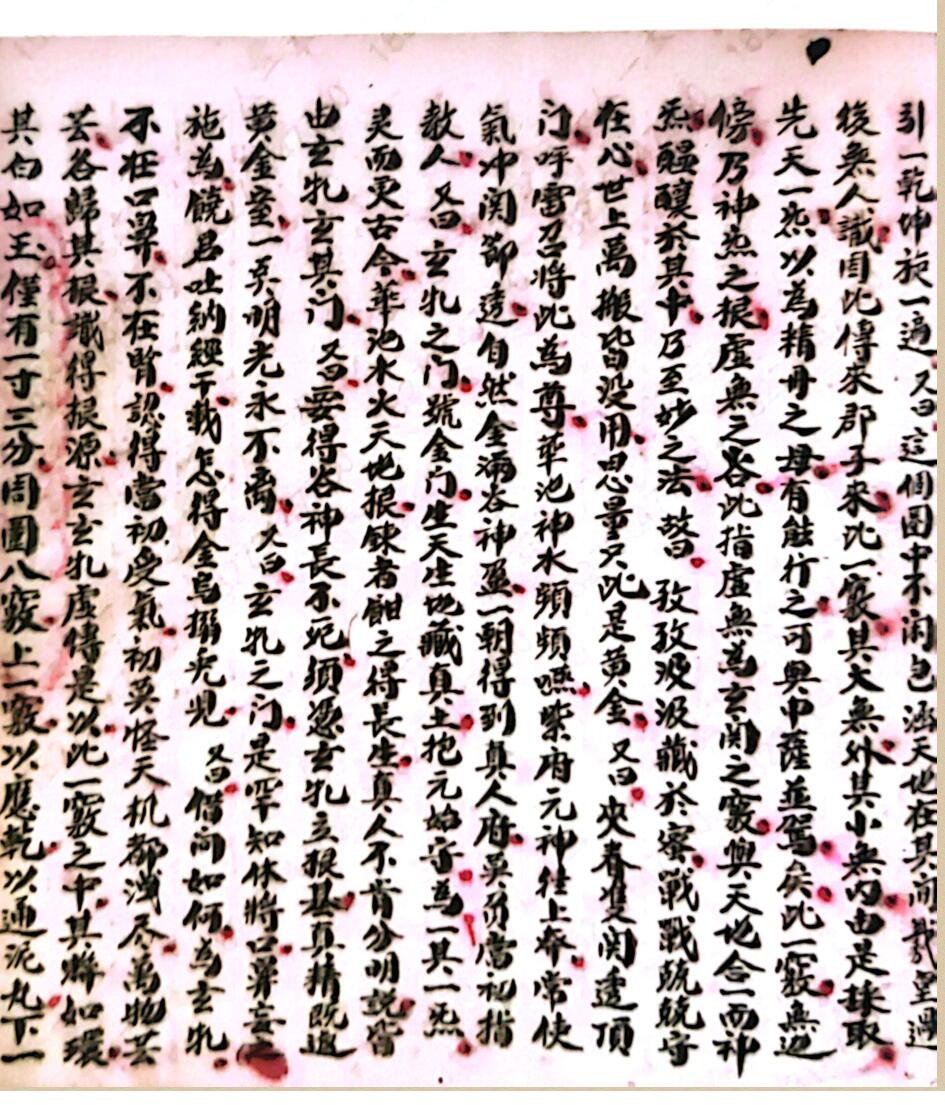 引一乾坤旋一遍 又曰這個圈中不閑包涵天地在其間羲皇過
後無人識因此傳來郡子來此一竅其大無外其小無內由是採取
先天一炁以為精母之母有能行之可與中薩並駕矣此一竅無边
傍乃神炁之根虛無之谷此指虛無為玄関之竅與天地合一而神
炁醞釀於其中乃至妙之法 故曰 孜孜汲汲藏於密戰戰兢兢守
在心世上萬搬皆没用思量只此是黄金 又曰夾脊雙関透頂
门呼雷召將此為尊華池神水頻頻嚥紫府元神往上奔常使
氣冲関節透自然金滿谷神盈一朝得到真人府莫勇當初指
教人 又曰玄牝之门號金门生天生地藏真土抱元始守為一其一炁
灵而更古今華池水火天地根鍊者餂之得長生真人不肯分明說皆
由玄牝玄其门 又曰要得谷神長不死須憑玄牝立根基真精既返
黄金室一𤆬明光永不离 又曰玄牝之门是罕知休將口鼻妄
施為饒君吐納經千載怎得金烏搦兎児 又曰 借问如何為玄牝
不在口鼻不在腎認得當初受氣初莫怪天机都洩尽萬物芸
芸各歸其根識得根源玄玄牝虛傳是以此一竅之中其聯如環
其白如玉僅有一寸三分周圍八竅上一竅以應乾以通泥丸下一